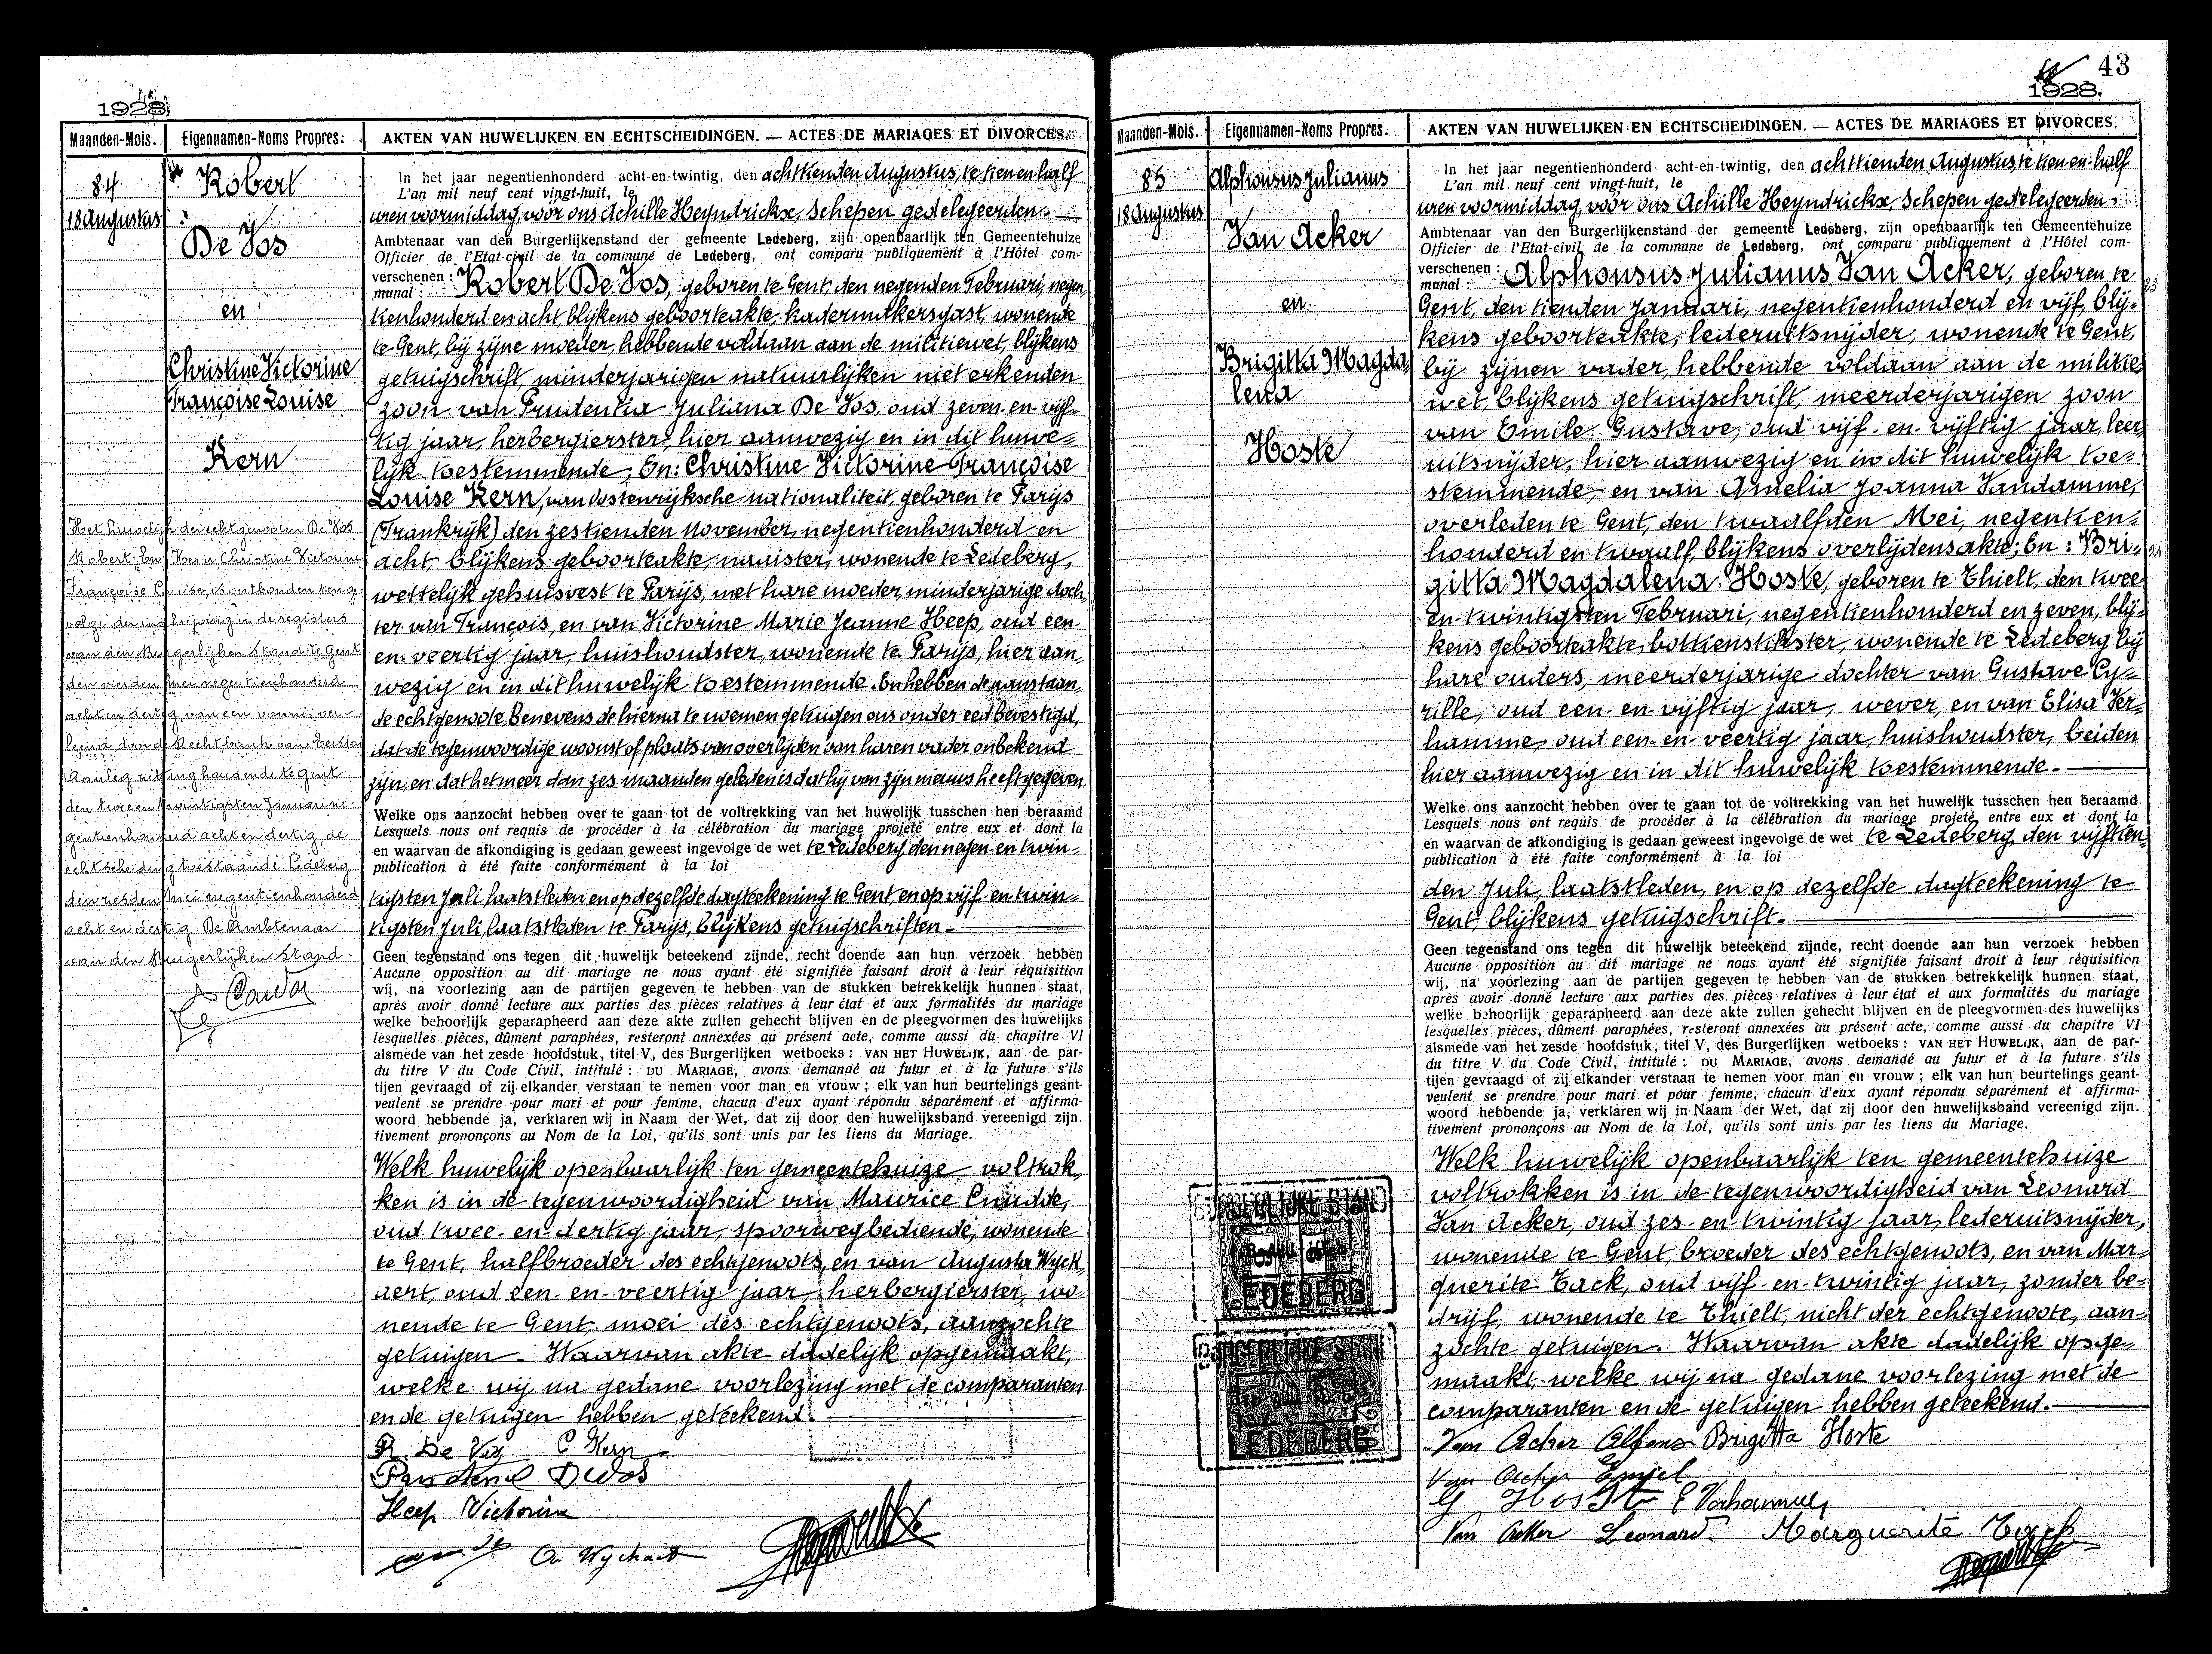 1928
Maanden-Mois. Eigennamen-Noms Propres. AKTEN VAN HUWELIJKEN EN ECHTSCHEIDINGEN. — ACTES DE MARIAGES ET DIVORCES.
84
18 Augustus
Robert
De Vos
en
Christine Victorine
Françoise Louise
Kern
Het huwelijk der echtgenooten De Vos
Robert en Kern Christine Victorine
Françoise Louise, is ontbonden ten ge-
volge der inschrijving in de registers
van den Burgerlijken Stand te Gent
den vierden Mei negentienhonderd
acht en dertig van een vonnis ver-
leend door de Rechtbank van Eersten
Aanleg zitting houdende te Gent
den twee en twintigsten Januari ne-
gentienhonderd acht en dertig de
echtscheiding toestaande Ledeberg
den zesden Mei negentienhonderd
acht en dertig. De Ambtenaar
van den Burgerlijken Stand.
In het jaar negentienhonderd acht-en-twintig, den achttienden Augustus, te tien en half
L'an mil neuf cent vingt-huit, le
uren voormiddag, vóór ons Achille Heyndrickx, Schepen gedelegeerden
Ambtenaar van den Burgerlijkenstand der gemeente Ledeberg, zijn openbaarlijk ten Gemeentehuize
Officier de l'Etat-civil de la commune de Ledeberg, ont comparu publiquement à l'Hôtel com-
verschenen : Robert De Vos, geboren te Gent, den negenden Februari, negen-
munal :
tienhonderd en acht, blijkens geboorteakte, kadermakersgast, wonende
te Gent, bij zijne moeder, hebbende voldaan aan de militiewet, blijkens
getuigschrift, minderjarigen natuurlijken niet erkenden
zoon van Prudentia Juliana De Vos, oud zeven-en-vijf-
tig jaar, herbergierster, hier aanwezig en in dit huwe-
lijk toestemmende; En: Christine Victorine Françoise
Louise Kern, van Oostenrijksche nationaliteit, geboren te Parijs
(Frankrijk) den zestienden November, negentienhonderd en
acht, blijkens geboorteakte, naaister, wonende te Ledeberg,
wettelijk gehuisvest te Parijs, met hare moeder, minderjarige doch-
ter van François, en van Victorine Marie Jeanne Heep, oud een-
en-veertig jaar, huishoudster, wonende te Parijs, hier aan-
wezig en in dit huwelijk toestemmende. En hebben de aanstaan-
de echtgenoote, benevens de hierna te noemen getuigen ons onder eed bevestigd,
dat de tegenwoordige woonst of plaats van overlijden van haren vader onbekend
zijn, en dat het meer dan zes maanden geleden is dat hij van zijn nieuws heeft gegeven.
Welke ons aanzocht hebben over te gaan tot de voltrekking van het huwelijk tusschen hen beraamd
Lesquels nous ont requis de procéder à la célébration du mariage projeté entre eux et dont la
en waarvan de afkondiging is gedaan geweest ingevolge de wet te Ledeberg den negen-en-twin-
publication à été faite conformément à la loi
tigsten Juli, laatstleden en op dezelfde dagteekening te Gent, en op vijf-en-twin-
tigsten Juli, laatstleden te Parijs, blijkens getuigschriften.
Geen tegenstand ons tegen dit huwelijk beteekend zijnde, recht doende aan hun verzoek hebben
Aucune opposition au dit mariage ne nous ayant été signifiée faisant droit à leur réquisition
wij, na voorlezing aan de partijen gegeven te hebben van de stukken betrekkelijk hunnen staat,
après avoir donné lecture aux parties des pièces relatives à leur état et aux formalités du mariage
welke behoorlijk geparapheerd aan deze akte zullen gehecht blijven en de pleegvormen des huwelijks
lesquelles pièces, dûment paraphées, resteront annexées au présent acte, comme aussi du chapitre VI
alsmede van het zesde hoofdstuk, titel V, des Burgerlijken wetboeks : VAN HET HUWELIJK, aan de par-
du titre V du Code Civil, intitulé : DU MARIAGE, avons demandé au futur et à la future s'ils
tijen gevraagd of zij elkander verstaan te nemen voor man en vrouw ; elk van hun beurtelings geant-
veulent se prendre pour mari et pour femme, chacun d'eux ayant répondu séparément et affirma-
woord hebbende ja, verklaren wij in Naam der Wet, dat zij door den huwelijksband vereenigd zijn.
tivement prononçons au Nom de la Loi, qu'ils sont unis par les liens du Mariage.
Welk huwelijk openbaarlijk ten gemeentehuize voltrok-
ken is in de tegenwoordigheid van Maurice Cnudde,
oud twee-en-dertig jaar, spoorwegbediende, wonende
te Gent, halfbroeder des echtgenoots, en van Augusta Wyck-
aert, oud een-en-veertig jaar, herbergierster, wo-
nende te Gent, moei des echtgenoots, aanzochte
getuigen. Waarvan akte dadelijk opgemaakt,
welke wij na gedane voorlezing met de comparanten
en de getuigen hebben geteekend.
R. De Vos C Kern
Devos
Heep Victorine
43
1928.
Maanden-Mois. Eigennamen-Noms Propres. AKTEN VAN HUWELIJKEN EN ECHTSCHEIDINGEN. — ACTES DE MARIAGES ET DIVORCES.
85
18 Augustus
Alphonsus Julianus
Van Acker
en
Brigitta Magda-
lena
Hoste
In het jaar negentienhonderd acht-en-twintig, den achttienden Augustus, te tien-en-half
L'an mil neuf cent vingt-huit, le
uren voormiddag, vóór ons Achille Heyndrickx, Schepen gedelegeerden
Ambtenaar van den Burgerlijkenstand der gemeente Ledeberg, zijn openbaarlijk ten Gemeentehuize
Officier de l'Etat-civil de la commune de Ledeberg, ont comparu publiquement à l'Hôtel com-
verschenen : Alphonsus Julianus Van Acker, geboren te
munal :
Gent, den tienden Januari, negentienhonderd en vijf, blij- 23
kens geboorteakte, lederuitsnijder, wonende te Gent,
bij zijnen vader, hebbende voldaan aan de militie-
wet, blijkens getuigschrift, meerderjarigen zoon
van Emile Gustave, oud vijf-en-vijftig jaar, leer-
uitsnijder, hier aanwezig en in dit huwelijk toe-
stemmende, en van Amelia Joanna Vandamme,
overleden te Gent, den twaalfden Mei, negentien-
honderd en twaalf, blijkens overlijdensakte; En : Bri- 21
gitta Magdalena Hoste, geboren te Thielt, den twee-
en-twintigsten Februari, negentienhonderd en zeven, blij-
kens geboorteakte, bottienstikster, wonende te Ledeberg bij
hare ouders, meerderjarige dochter van Gustave Cy-
rille, oud een-en-vijftig jaar, wever, en van Elisa Ver-
hamme, oud een-en-veertig jaar, huishoudster, beiden
hier aanwezig en in dit huwelijk toestemmende.
Welke ons aanzocht hebben over te gaan tot de voltrekking van het huwelijk tusschen hen beraamd
Lesquels nous ont requis de procéder à la célébration du mariage projeté entre eux et dont la
en waarvan de afkondiging is gedaan geweest ingevolge de wet te Ledeberg, den vijftien-
publication à été faite conformément à la loi
den Juli, laatstleden, en op dezelfde dagteekening te
Gent, blijkens getuigschrift.
Geen tegenstand ons tegen dit huwelijk beteekend zijnde, recht doende aan hun verzoek hebben
Aucune opposition au dit mariage ne nous ayant été signifiée faisant droit à leur réquisition
wij, na voorlezing aan de partijen gegeven te hebben van de stukken betrekkelijk hunnen staat,
après avoir donné lecture aux parties des pièces relatives à leur état et aux formalités du mariage
welke behoorlijk geparapheerd aan deze akte zullen gehecht blijven en de pleegvormen des huwelijks
lesquelles pièces, dûment paraphées, resteront annexées au présent acte, comme aussi du chapitre VI
alsmede van het zesde hoofdstuk, titel V, des Burgerlijken wetboeks : VAN HET HUWELIJK, aan de par-
du titre V du Code Civil, intitulé : DU MARIAGE, avons demandé au futur et à la future s'ils
tijen gevraagd of zij elkander verstaan te nemen voor man en vrouw ; elk van hun beurtelings geant-
veulent se prendre pour mari et pour femme, chacun d'eux ayant répondu séparément et affirma-
woord hebbende ja, verklaren wij in Naam der Wet, dat zij door den huwelijksband vereenigd zijn.
tivement prononçons au Nom de la Loi, qu'ils sont unis par les liens du Mariage.
Welk huwelijk openbaarlijk ten gemeentehuize
voltrokken is in de tegenwoordigheid van Leonard
Van Acker, oud zes-en-twintig jaar, lederuitsnijder,
wonende te Gent, broeder des echtgenoots, en van Mar-
guerite Tack, oud vijf-en-twintig jaar, zonder be-
drijf, wonende te Thielt, nicht der echtgenoote, aan-
zochte getuigen. Waarvan akte dadelijk opge-
maakt, welke wij na gedane voorlezing met de
comparanten en de getuigen hebben geteekend.
Van Acker Alfons Brigitta Hoste
Van Acker Emiel
G Hoste E Verhamme
Van Acker Leonard Marguerite Tack
BURGERLIJKE STAND
LEDEBERG
BURGERLIJKE STAND
LEDEBERG